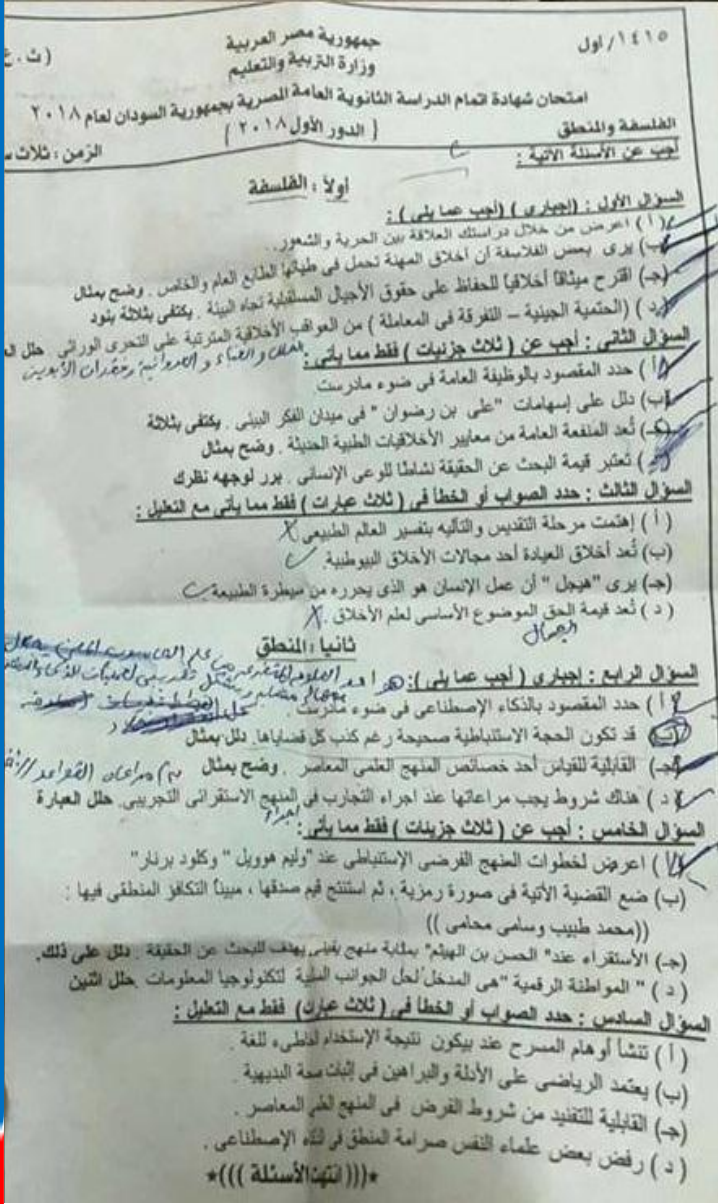 ١٤١٥/ أول
جمهورية مصر العربية
(ث.ع
وزارة التربية والتعليم
امتحان شهادة اتمام الدراسة الثانوية العامة المصرية بجمهورية السودان لعام ٢٠١٨
الفلسفة والمنطق
( الدور الأول ٢٠١٨ )
الزمن : ثلاث س
أجب عن الأسئلة الآتية :
أولاً : الفلسفة
السؤال الأول : (إجبارى ) (أجب عما يلى ) :
( أ ) اعرض من خلال دراستك العلاقة بين الحرية والشعور..
(ب) يرى بعض الفلاسفة أن أخلاق المهنة تحمل فى طياتها الطابع العام والخاص . وضح بمثال
(جـ) اقترح ميثاقاً أخلاقياً للحفاظ على حقوق الأجيال المستقبلية تجاه البيئة . يكتفى بثلاثة بنود
( د ) (الحتمية الجينية – التفرقة فى المعاملة ) من العواقب الأخلاقية المترتبة على التحرى الوراثى. حلل الع
السؤال الثانى : أجب عن ( ثلاث جزئيات ) فقط مما يأتى :
و العدوانية وفقدان الأبوين
( أ ) حدد المقصود بالوظيفة العامة فى ضوء مادرست.
(ب) دلل على إسهامات "على بن رضوان " فى ميدان الفكر البيئى . يكتفى بثلاثة
(جـ) تُعد المنفعة العامة من معايير الأخلاقيات الطبية الحديثة . وضح بمثال
( د ) تعتبر قيمة البحث عن الحقيقة نشاطا للوعى الإنسانى . برر لوجهه نظرك
السؤال الثالث : حدد الصواب أو الخطأ فى ( ثلاث عبارات ) فقط مما يأتى مع التعليل :
( أ ) إهتمت مرحلة التقديس والتأليه بتفسير العالم الطبيعى X
(ب) تُعد أخلاق العيادة أحد مجالات الأخلاق البيوطبية.
(جـ) يرى "هيجل " أن عمل الإنسان هو الذى يحرره من سيطرة الطبيعة
( د ) تُعد قيمة الحق الموضوع الأساسى لعلم الأخلاق . X
الجمال
ثانيا : المنطق
السؤال الرابع : إجبارى ( أجب عما يلى ) :
( أ ) حدد المقصود بالذكاء الإصطناعى فى ضوء مادرست .
(ب) قد تكون الحجة الاستنباطية صحيحة رغم كذب كل قضاياها. دلل بمثال
(جـ) القابلية للقياس أحد خصائص المنهج العلمى المعاصر . وضح بمثال
( د ) هناك شروط يجب مراعاتها عند اجراء التجارب فى المنهج الاستقرائى التجريبى. حلل العبارة
السؤال الخامس : أجب عن ( ثلاث جزيئات ) فقط مما يأتى :
( أ ) اعرض لخطوات المنهج الفرضى الإستنباطى عند "وليم هوويل " وكلود برنار"
(ب) ضع القضية الأتية فى صورة رمزية ، ثم استنتج قيم صدقها ، مبيناً التكافؤ المنطقى فيها :
((محمد طبيب وسامى محامى ))
(جـ) الأستقراء عند" الحسن بن الهيثم" بمثابة منهج يقينى يهدف للبحث عن الحقيقة . دلل على ذلك.
( د ) " المواطنة الرقمية "هى المدخل لحل الجوانب السلبية لتكنولوجيا المعلومات .حلل اثنين
السؤال السادس : حدد الصواب أو الخطأ فى ( ثلاث عبارات) فقط مع التعليل :
( أ ) تنشأ أوهام المسرح عند بيكون نتيجة الإستخدام الخاطىء للغة .
(ب) يعتمد الرياضى على الأدلة والبراهين فى إثبات صحة البديهية .
(جـ) القابلية للتفنيد من شروط الفرض فى المنهج العلمى المعاصر .
( د ) رفض بعض علماء النفس صرامة المنطق فى الذكاء الإصطناعى .
*((( انتهت الأسئلة )))*